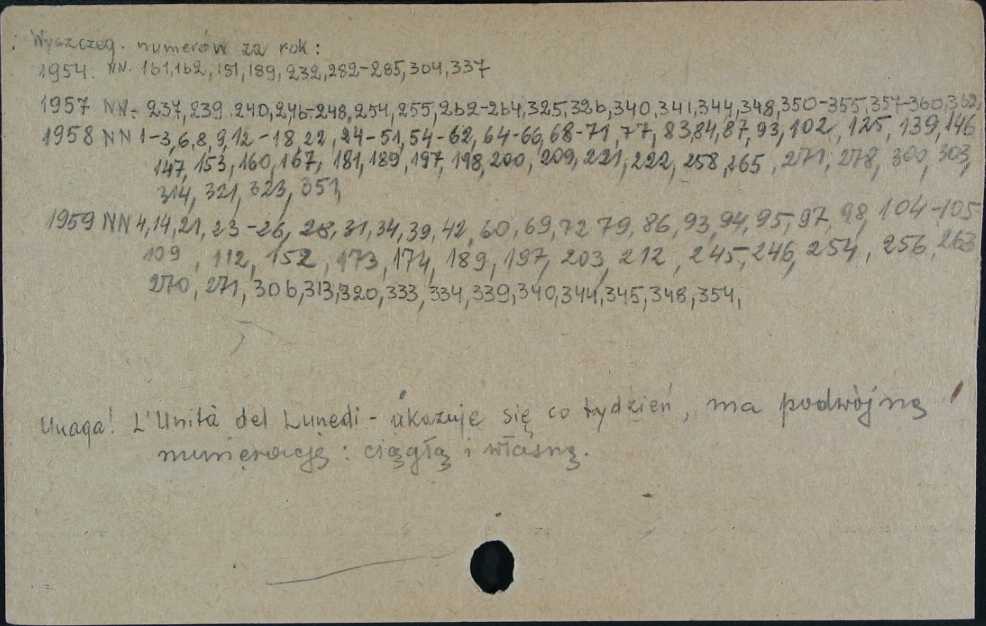 Wyszczeg. numerów za rok:
1954. NN. 161,162,181,189,232,282-285,304,337
1957 NN. 237,239.240,246-248,254,255,262-264,325,326,340,341,344,348,350-355,357-360,362,
1958 NN 1-3,6,8,9,12-18,22,24-51,54-62,64-66,68-71,77,83,84,87,93,102,125,139,146
147,153,160,167,181,189,197,198,200,209,221,222,258,265,271,278,300,303,
314,321,323,351,
1959 NN 4,14,21,23-26,28,31,34,39,42,60,69,72 79,86,93,94,95,97,98,104-105
109,112,152,173,174,189,197,203,212,245,246,254,256,263
270,271,306,313,320,333,334,339,340,344,345,348,354,
Uwaga! L'Unità del Lunedi - ukazuje się co tydzień, ma podwójną
numerację: ciągłą i własną.